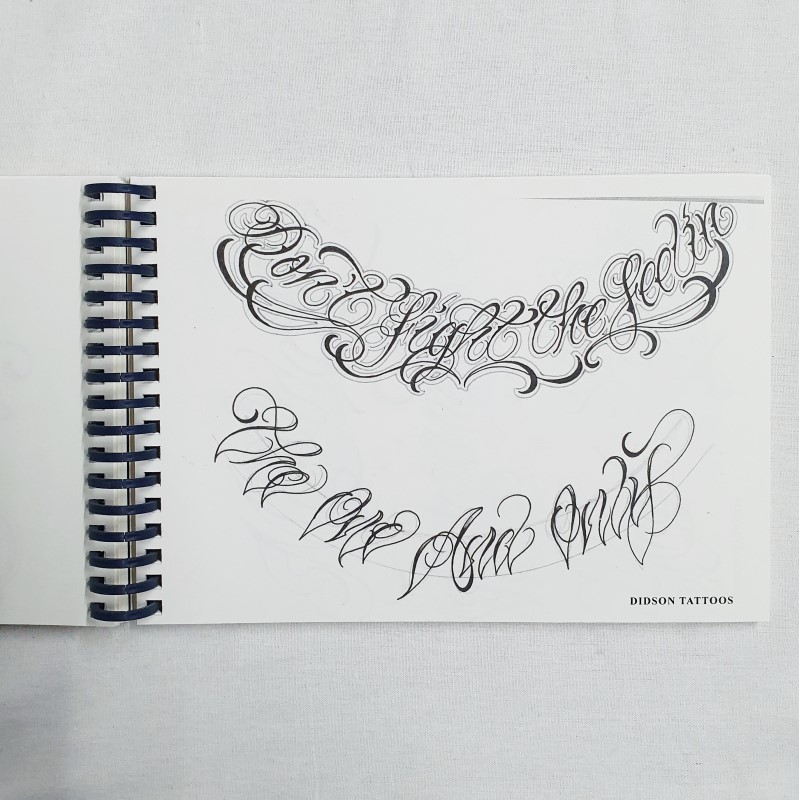 Don't fight the feelin
The One And Only
DIDSON TATTOOS